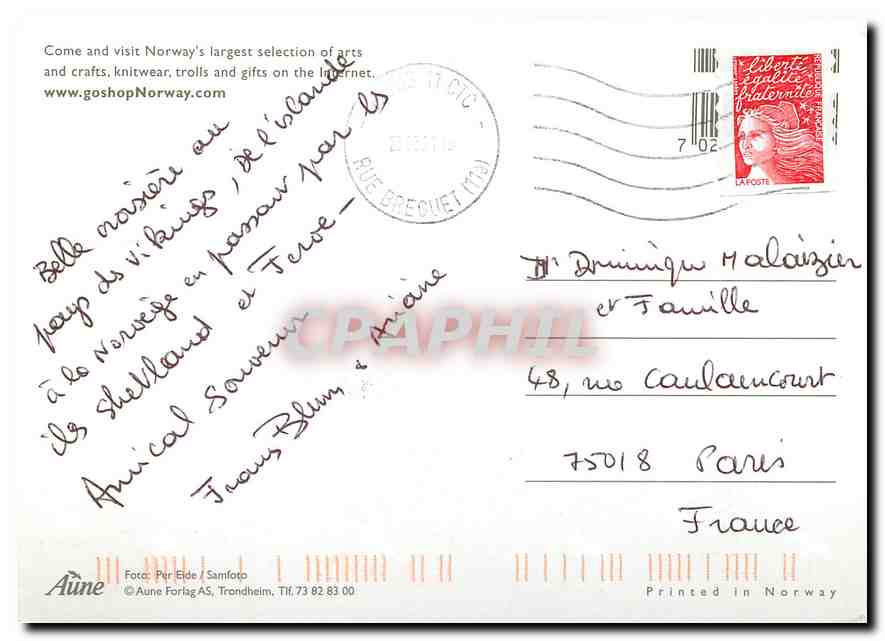 Come and visit Norway's largest selection of arts
and crafts, knitwear, trolls and gifts on the Internet.
www.goshopNorway.com
Belle croisière au
pays des Vikings, de l'islande
à la Norvège en passant par les
iles Shetland et Feroe -
Amical Souvenir
Frans Blum & Ariane
11 CTC
RUE BREGUET (113)
7 02
liberté
égalité
fraternité
REPUBLIQUE FRANÇAISE
LA POSTE
Mr Dominique Malaizier
et Famille
48, rue Caulaincourt
75018 Paris
France
CPAPHIL
Aune
Foto: Per Eide / Samfoto
© Aune Forlag AS, Trondheim, Tlf. 73 82 83 00
Printed in Norway